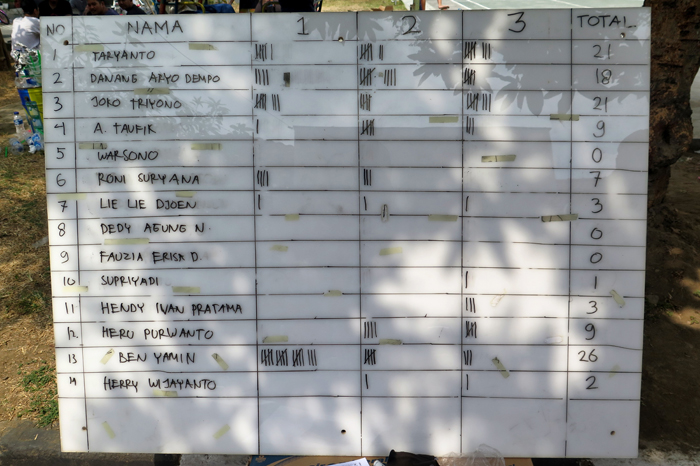 NO NAMA 1 2 3 TOTAL
1 TARYANTO 21
2 DANANG ARYO DEMPO 18
3 JOKO TRIYONO 21
4 A. TAUFIK 9
5 WARSONO 0
6 RONI SURYANA 7
7 LIE LIE DJOEN 3
8 DEDY AGUNG N. 0
9 FAUZIA ERISA D. 0
10 SUPRIYADI 1
11 HENDY IVAN PRATAMA 3
12. HERU PURWANTO 9
13 BEN YAMIN 26
14 HERRY WIJAYANTO 2